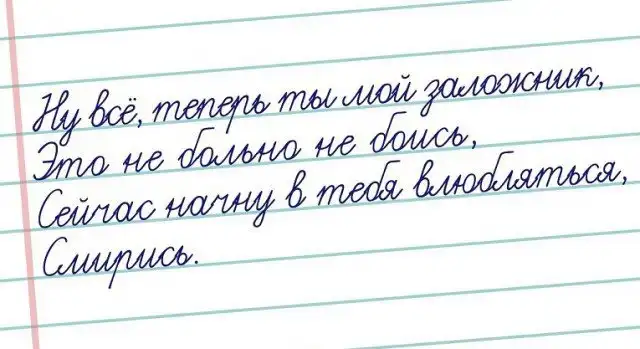 Ну всё, теперь ты мой заложник,
Это не больно не боись,
Сейчас начну в тебя влюбляться,
Смирись.